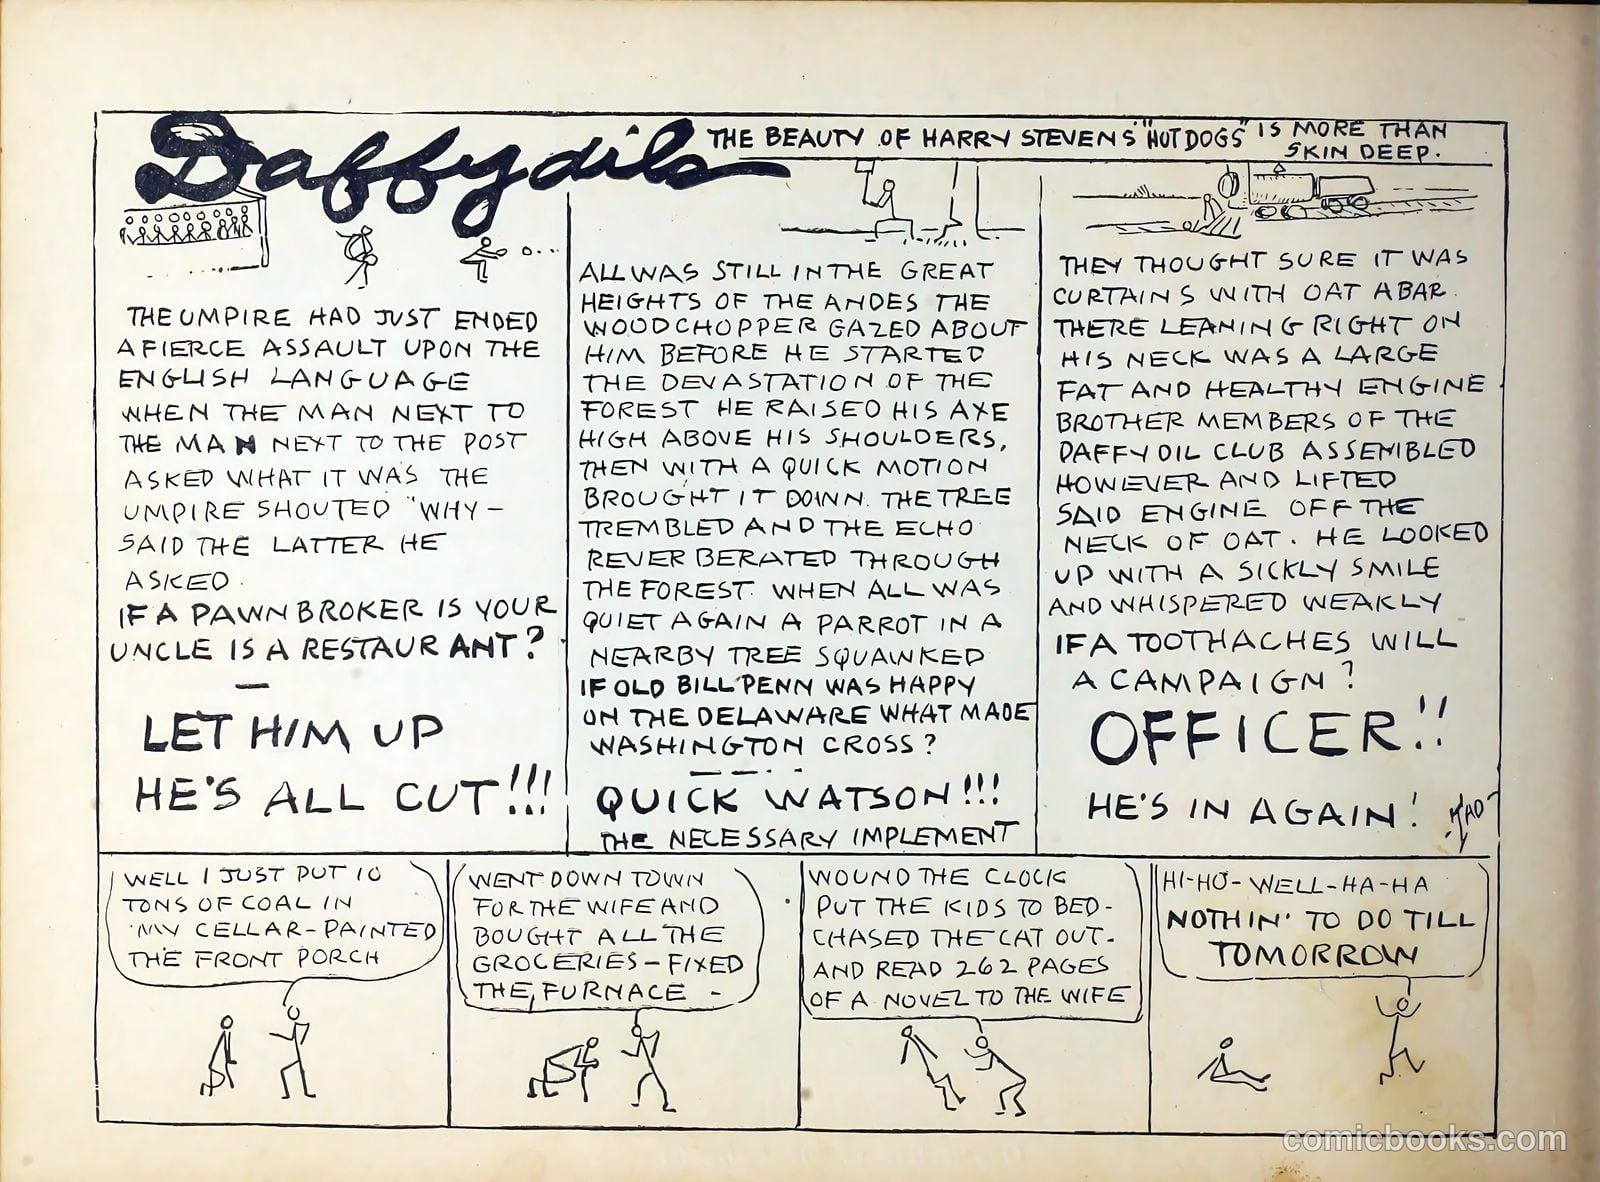 Daffydils
THE BEAUTY OF HARRY STEVENS "HOT DOGS" IS MORE THAN
SKIN DEEP.
THE UMPIRE HAD JUST ENDED
A FIERCE ASSAULT UPON THE
ENGLISH LANGUAGE
WHEN THE MAN NEXT TO
THE MAN NEXT TO THE POST
ASKED WHAT IT WAS THE
UMPIRE SHOUTED "WHY—
SAID THE LATTER HE
ASKED.
IF A PAWNBROKER IS YOUR
UNCLE IS A RESTAURANT?
LET HIM UP
HE'S ALL CUT!!!
ALL WAS STILL IN THE GREAT
HEIGHTS OF THE ANDES THE
WOODCHOPPER GAZED ABOUT
HIM BEFORE HE STARTED
THE DEVASTATION OF THE
FOREST HE RAISED HIS AXE
HIGH ABOVE HIS SHOULDERS,
THEN WITH A QUICK MOTION
BROUGHT IT DOWN. THE TREE
TREMBLED AND THE ECHO
REVERBERATED THROUGH
THE FOREST. WHEN ALL WAS
QUIET AGAIN A PARROT IN A
NEARBY TREE SQUAWKED
IF OLD BILL PENN WAS HAPPY
ON THE DELAWARE WHAT MADE
WASHINGTON CROSS?
QUICK WATSON!!!
THE NECESSARY IMPLEMENT
THEY THOUGHT SURE IT WAS
CURTAINS WITH OAT A BAR.
THERE LEANING RIGHT ON
HIS NECK WAS A LARGE
FAT AND HEALTHY ENGINE
BROTHER MEMBERS OF THE
DAFFYDIL CLUB ASSEMBLED
HOWEVER AND LIFTED
SAID ENGINE OFF THE
NECK OF OAT. HE LOOKED
UP WITH A SICKLY SMILE
AND WHISPERED WEAKLY
IF A TOOTHACHES WILL
A CAMPAIGN?
OFFICER!!
HE'S IN AGAIN!
TAD
WELL I JUST PUT 10
TONS OF COAL IN
MY CELLAR-PAINTED
THE FRONT PORCH
WENT DOWN TOWN
FOR THE WIFE AND
BOUGHT ALL THE
GROCERIES—FIXED
THE FURNACE -
WOUND THE CLOCK
PUT THE KIDS TO BED-
CHASED THE CAT OUT-
AND READ 262 PAGES
OF A NOVEL TO THE WIFE
HI-HO-WELL-HA-HA
NOTHIN' TO DO TILL
TOMORROW
comicbooks.com